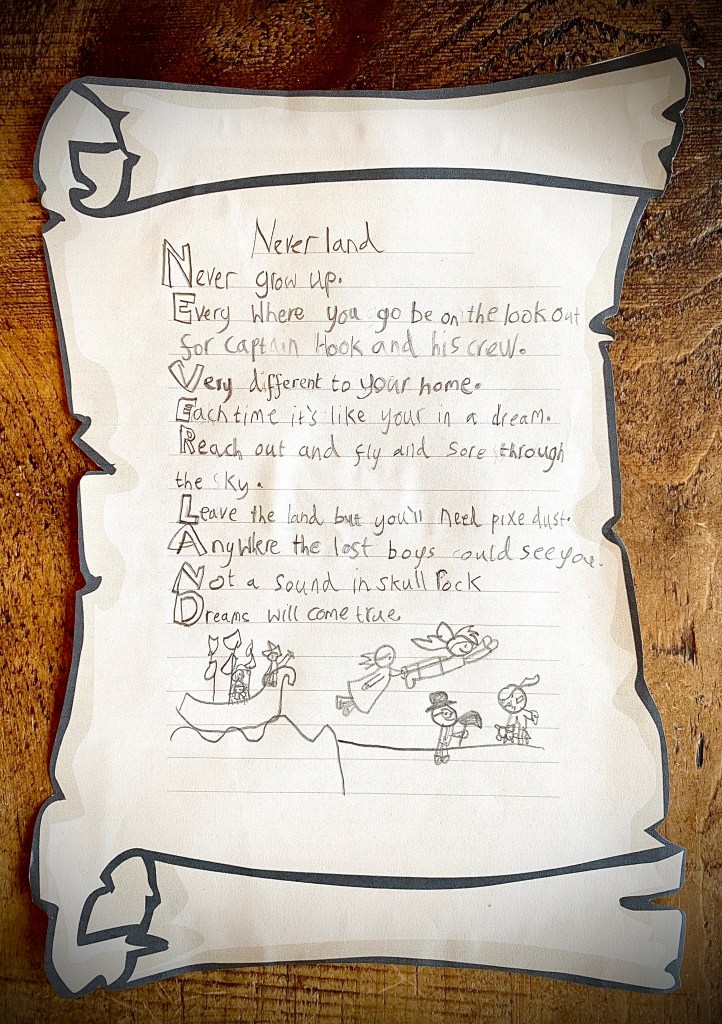 Neverland
Never grow up.
Every where you go be on the look out
for captain Hook and his crew.
Very different to your home.
Each time it's like your in a dream.
Reach out and fly and sore through
the sky.
Leave the land but you'll need pixe dust.
Anywhere the lost boys could see you.
Not a sound in skull Rock
Dreams will come true.